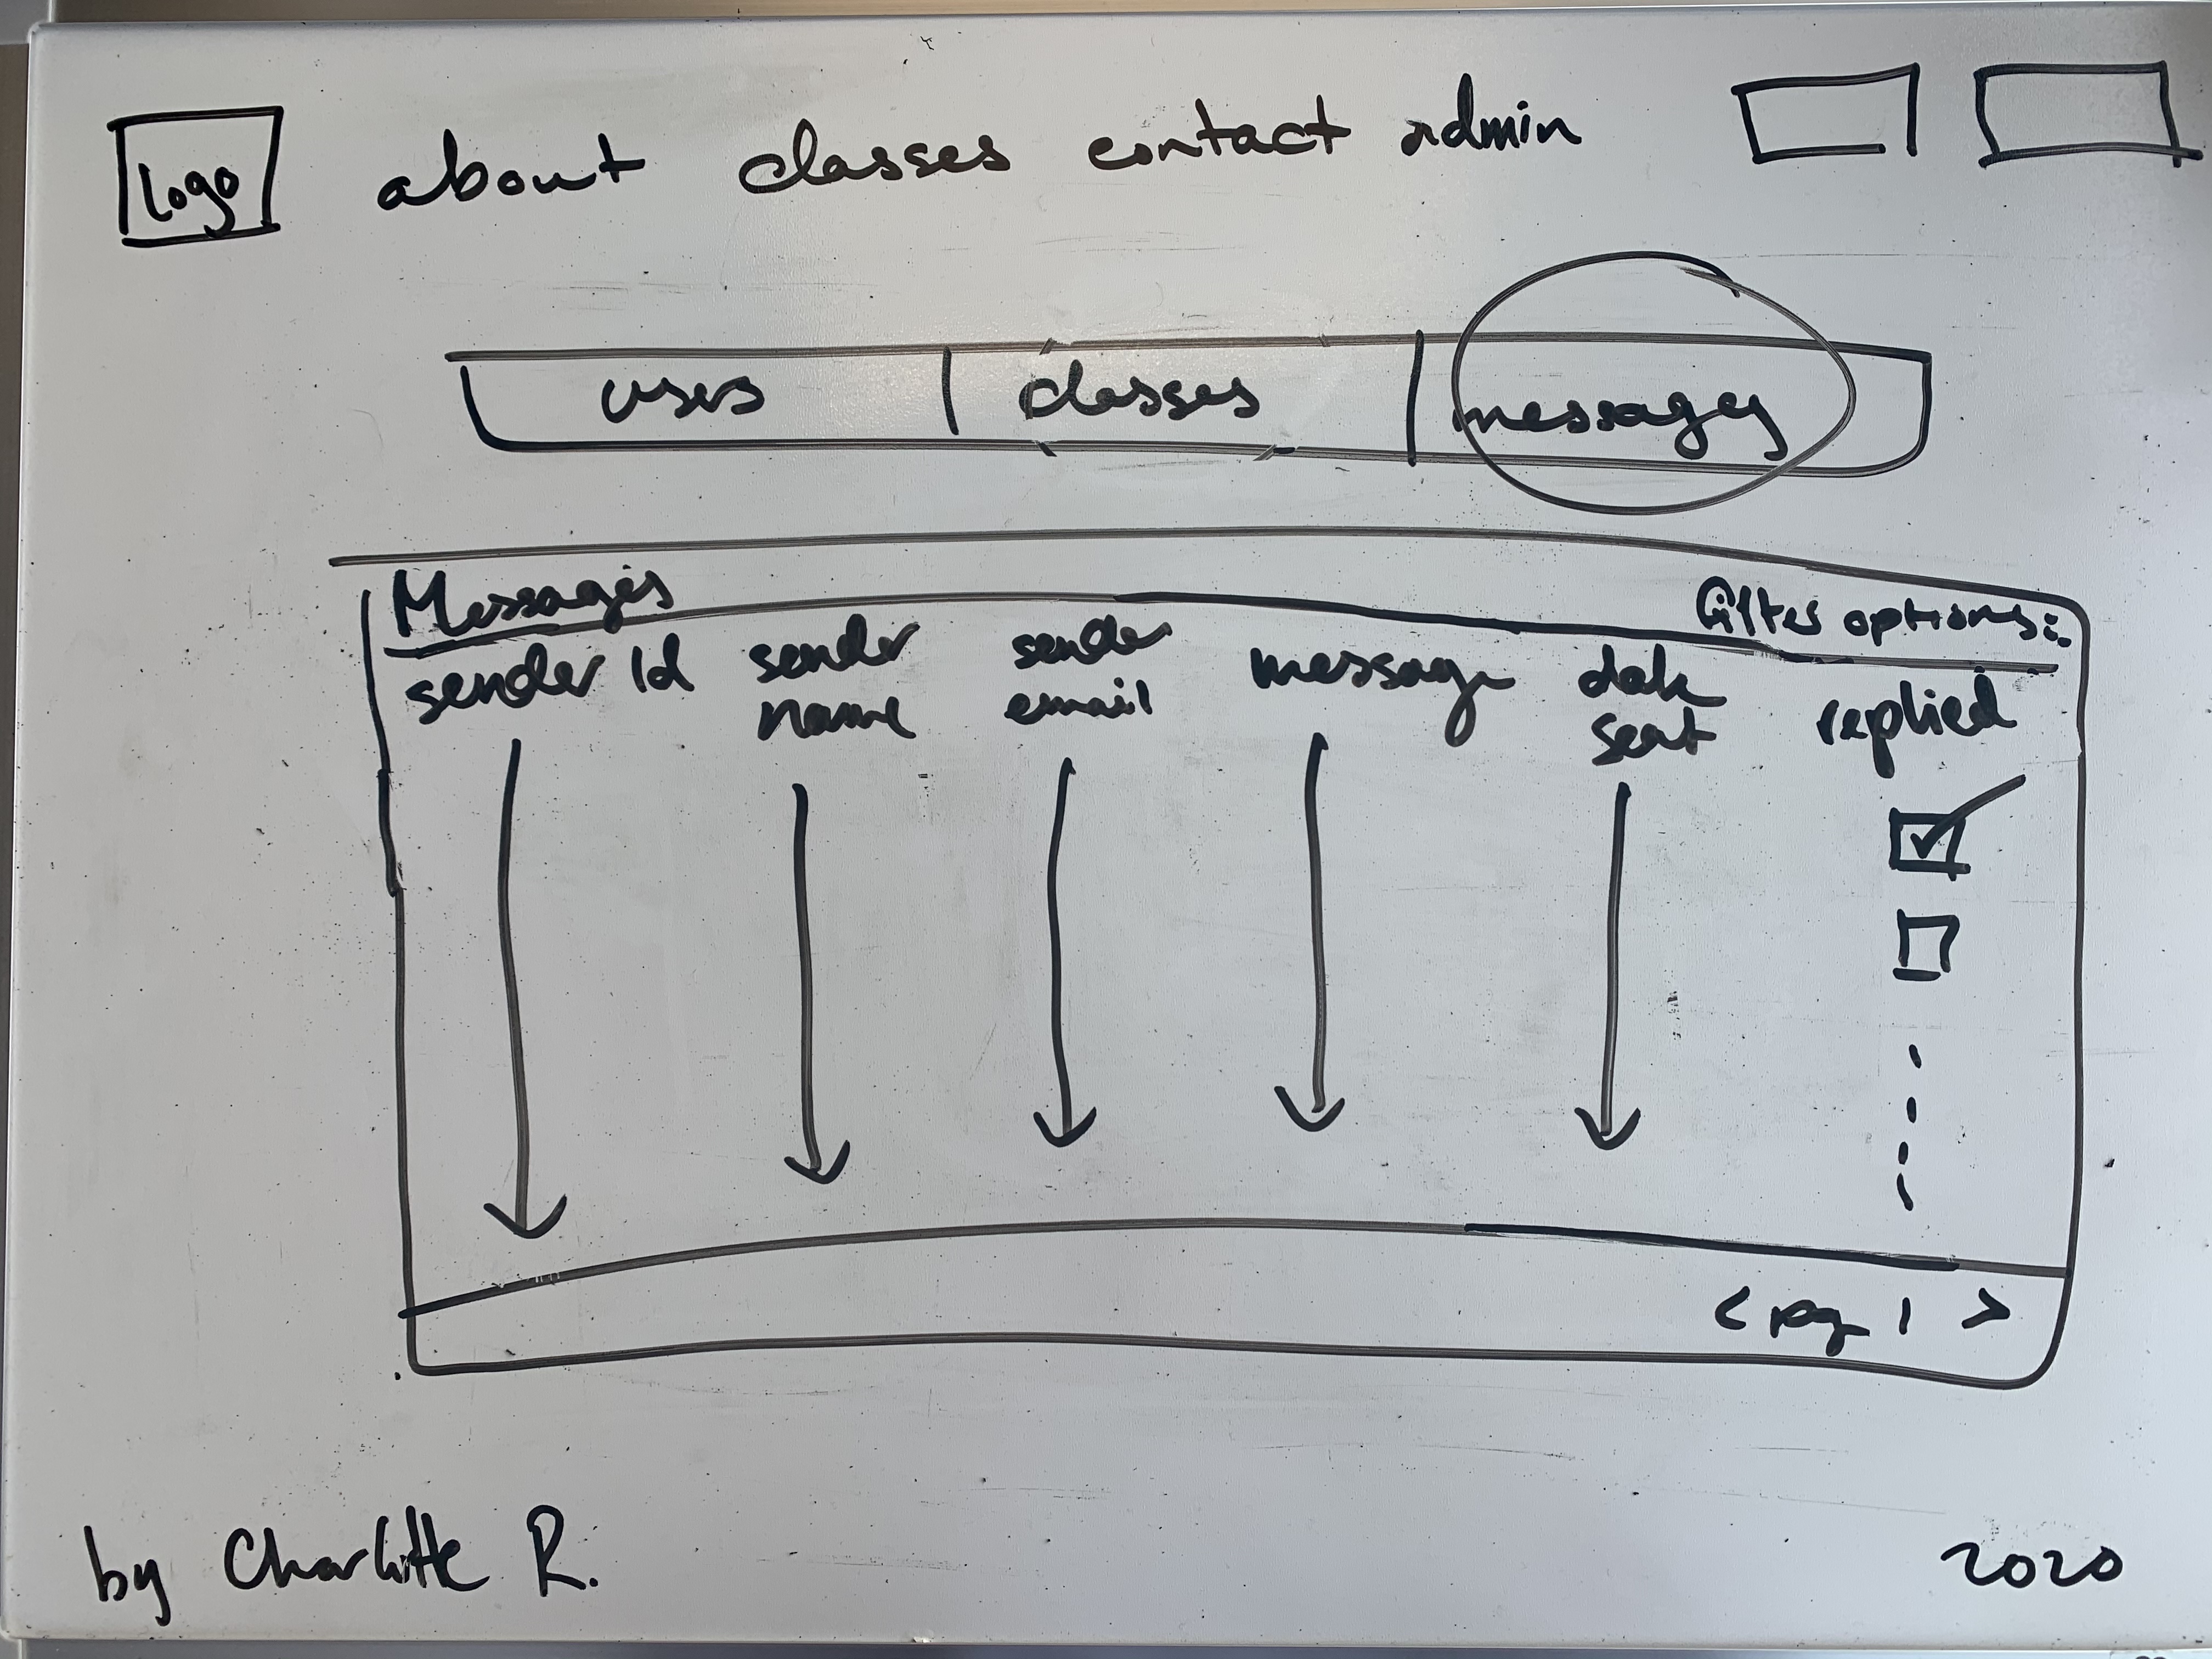 Logo about classes contact admin
users classes messages
Messages filter options:
sender id sender name sender email message date sent replied
< pg 1 >
by Charlotte R. 2020